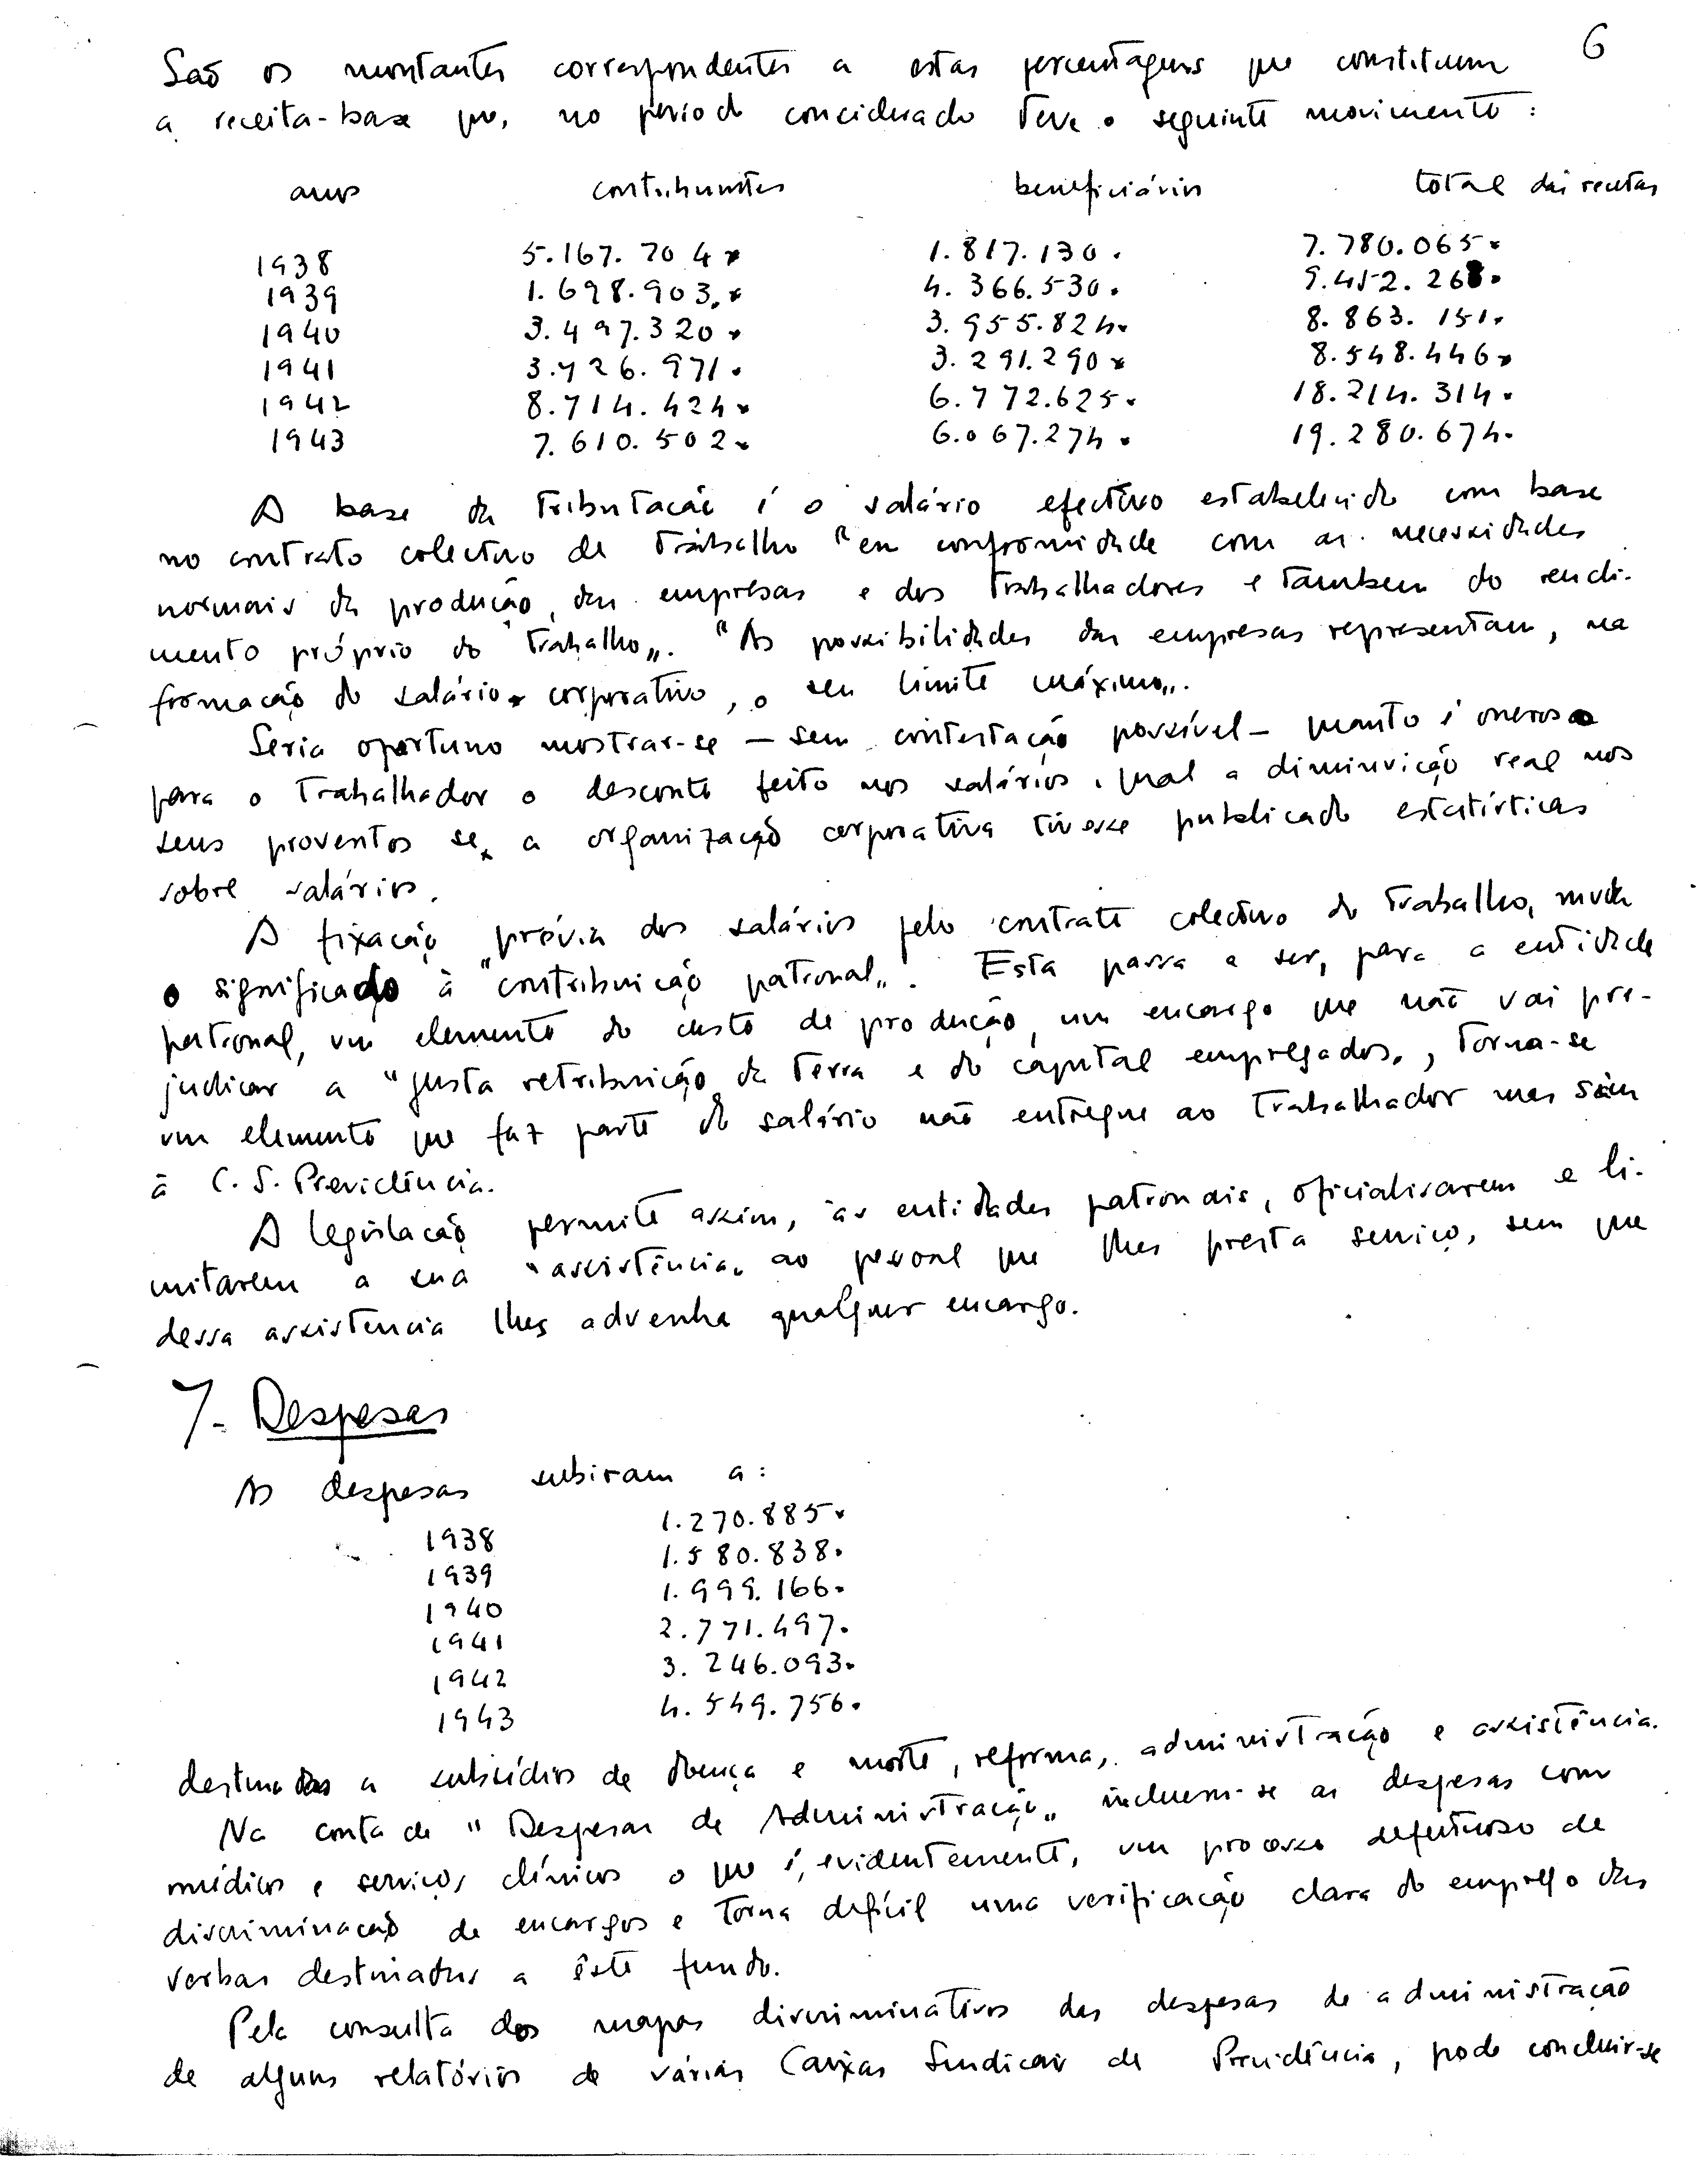 6
São os montantes correspondentes a estas percentagens que constituem
a receita-base que, no periodo conciderado teve o seguinte movimento:
anos contribuintes beneficiários total das receitas
1938 5.167.704 1.817.130. 7.780.065
1939 1.698.903, 4.366.530. 9.452.268.
1940 3.497.320 3.955.824 8.863.151.
1941 3.726.971. 3.291.290 8.548.446
1942 8.714.424 6.772.625. 18.214.314.
1943 7.610.502 6.067.274. 19.280.674.
A base da tributação é o salário efectivo estabelecido com base
no contrato colectivo de trabalho "em conformidade com as necessidades
normais da produção, das empresas e dos trabalhadores e tambem do rendi-
mento próprio do trabalho„. "As possibilidades das empresas representam, na
formação do salário corporativo, o seu limite máximo„.
Seria oportuno mostrar-se — sem contestação possível — quanto é oneroso
para o trabalhador o desconto feito nos salários, qual a diminuição real nos
seus proventos se, a organização corporativa tivesse publicado estatísticas
sobre salários.
A fixação prévia dos salários pelo contrato colectivo do trabalho, muda
o significado à "contribuição patronal„. Esta passa a ser, para a entidade
patronal, um elemento do custo de produção, um encargo que não vai pre-
judicar a "justa retribuição da terra e do capital empregados„, torna-se
um elemento que faz parte do salário não entregue ao trabalhador mas sim
à C. S. Previdência.
A legislação permite assim, às entidades patronais, oficialisarem e li-
mitarem a sua "assistência„ ao pessoal que lhes presta serviço, sem que
dessa assistencia lhes advenha qualquer encargo.
7- Despesas
As despesas subiram a:
1938 1.270.885
1939 1.580.838.
1940 1.999.166.
1941 2.771.497.
1942 3.246.093.
1943 4.549.756.
destinadas a subsídios de doença e morte, reforma, administração e assistência.
Na conta de "Despesas de Administração„ incluem-se as despesas com
médicos e serviços clínicos o que é, evidentemente, um processo defeituoso de
discriminação de encargos e torna defícil uma verificação clara do emprego das
verbas destinadas a êste fundo.
Pela consulta dos mapas discriminativos das despesas de administração
de alguns relatórios de várias Caixas Sindicais de Previdência, pode concluir-se